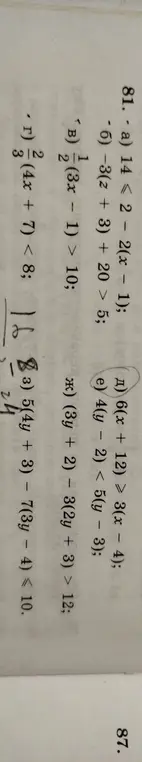 81. а) 14 ⩽ 2 − 2(x − 1); д) 6(x + 12) ⩾ 3(x − 4);
б) −3(z + 3) + 20 > 5; е) 4(y − 2) < 5(y − 3);
в) 1/2 (3x − 1) > 10; ж) (3y + 2) − 3(2y + 3) > 12;
г) 2/3 (4x + 7) < 8; з) 5(4y + 3) − 7(3y − 4) ⩽ 10.
87.